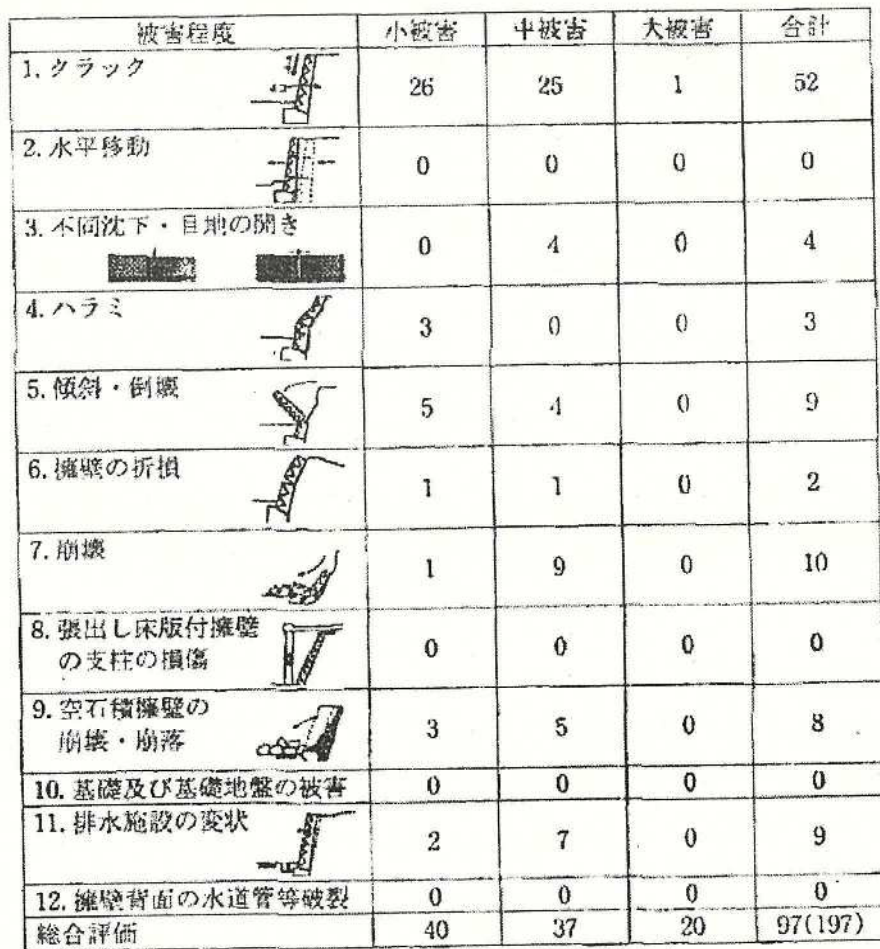 被害程度 小被害 中被害 大被害 合計
1. クラック 26 25 1 52
2. 水平移動 0 0 0 0
3. 不同沈下・目地の開き 0 4 0 4
4. ハラミ 3 0 0 3
5. 傾斜・倒壊 5 4 0 9
6. 擁壁の折損 1 1 0 2
7. 崩壊 1 9 0 10
8. 張出し床版付擁壁
の支柱の損傷 0 0 0 0
9. 空石積擁壁の
崩壊・崩落 3 5 0 8
10. 基礎及び基礎地盤の被害 0 0 0 0
11. 排水施設の変状 2 7 0 9
12. 擁壁背面の水道管等破裂 0 0 0 0
総合評価 40 37 20 97(197)